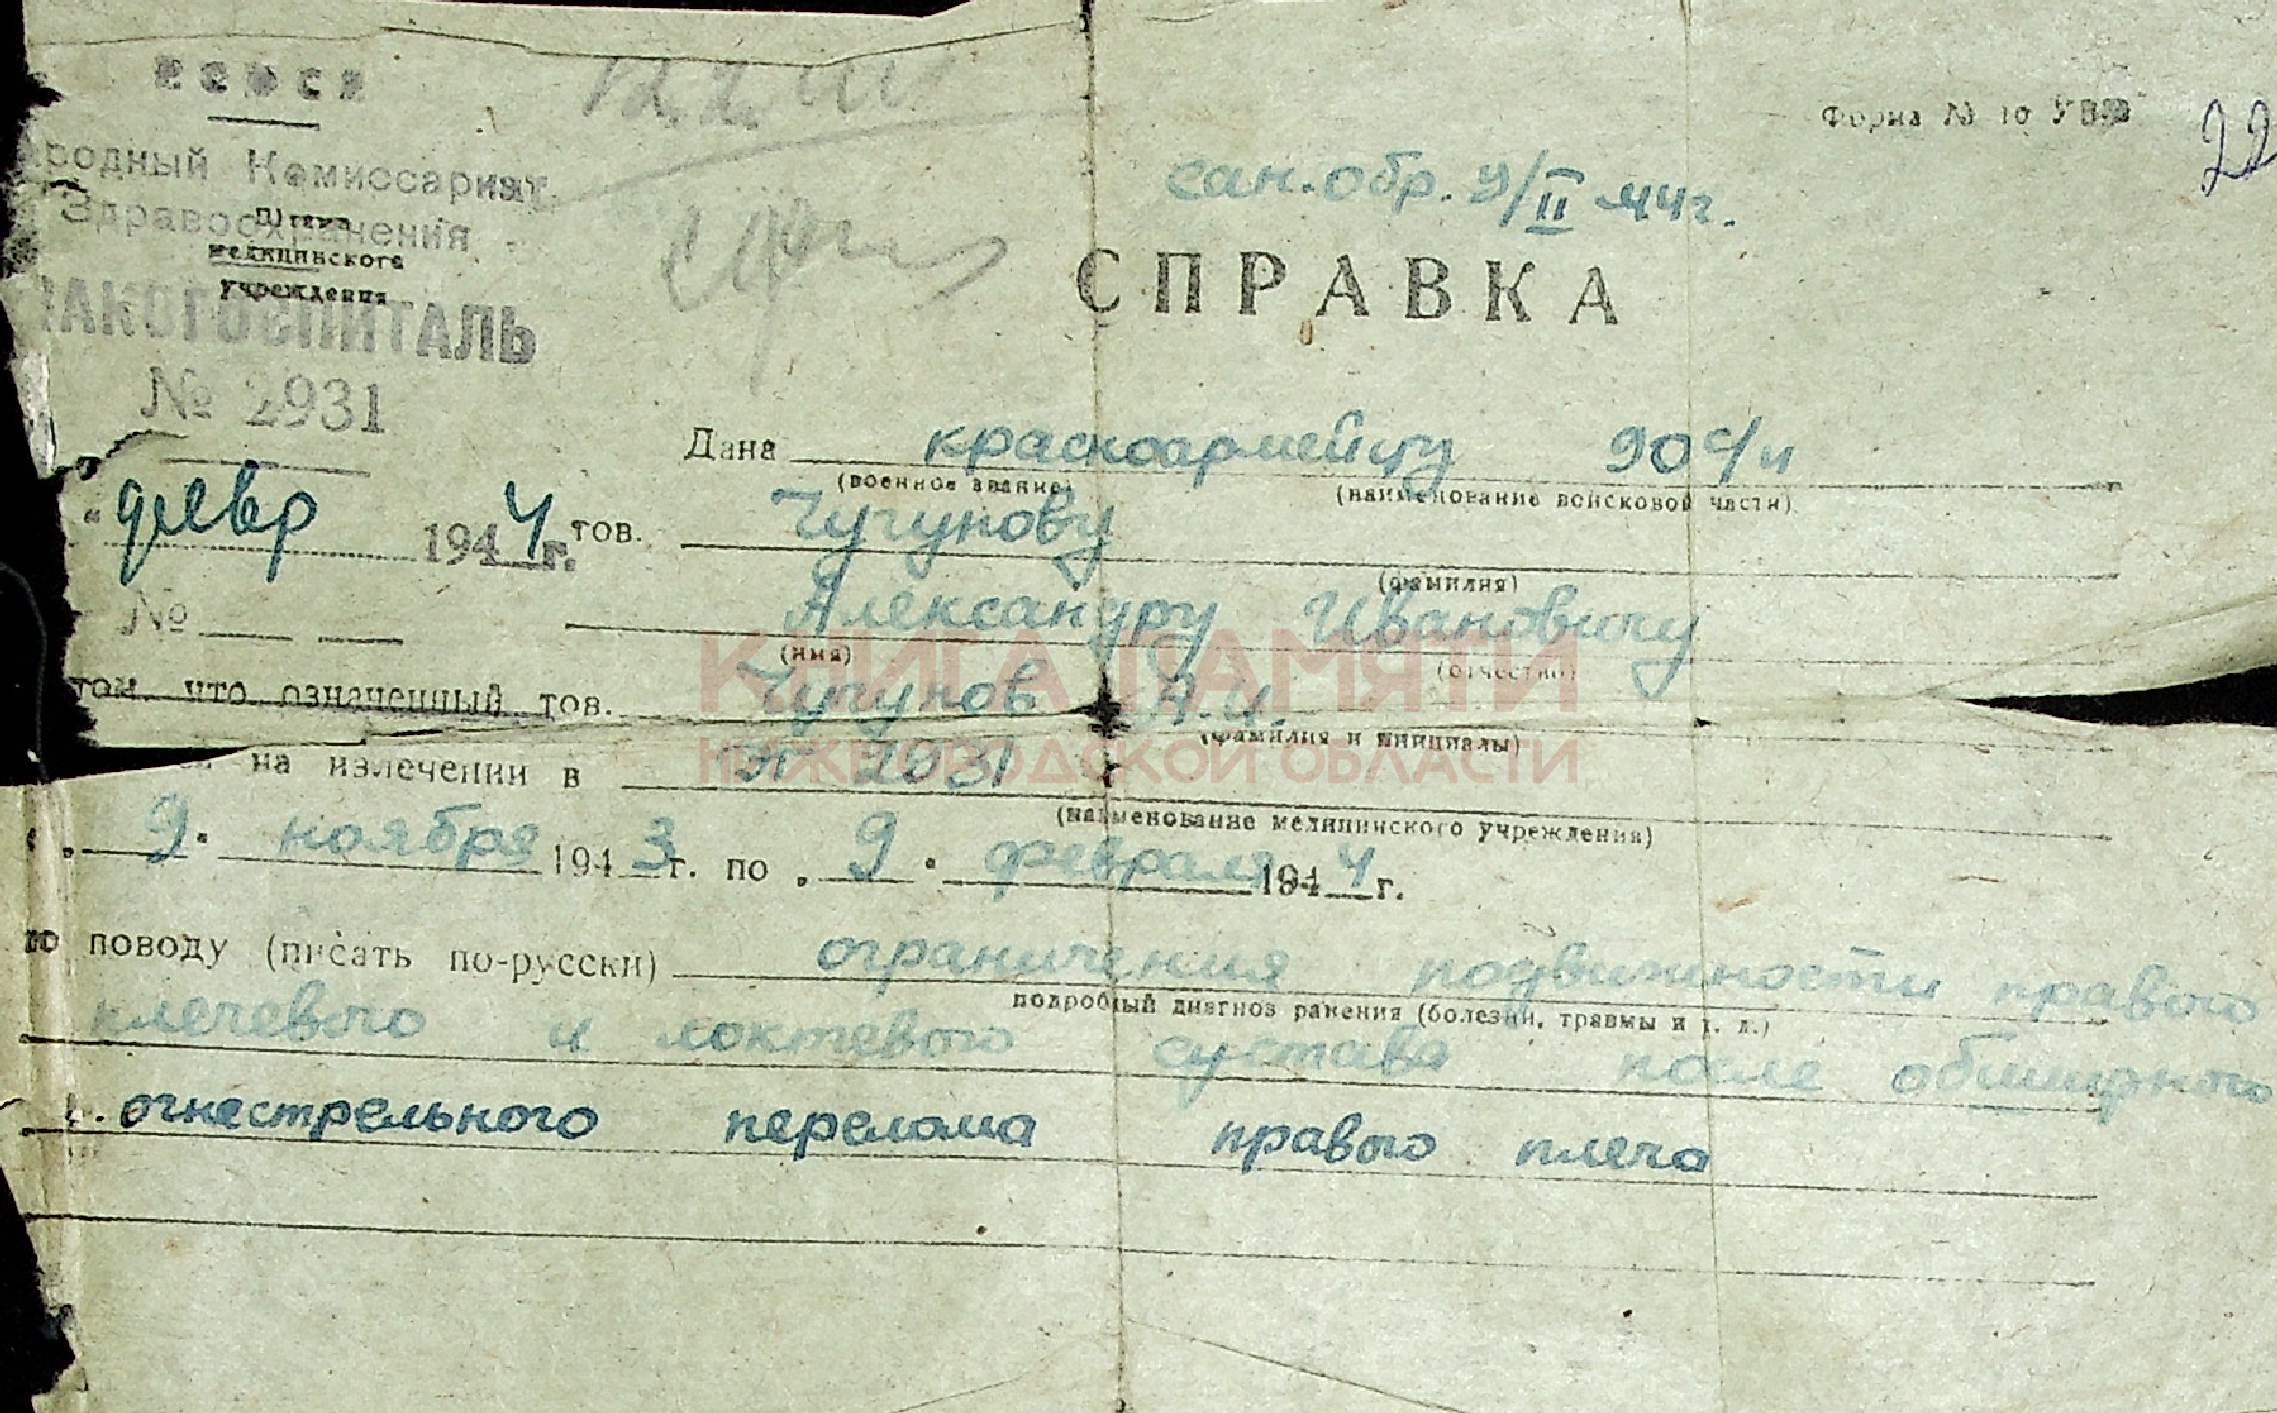 РСФСР
Форма № 10 УВР
22
ародный Комиссариат
сан. обр. 9/II 44г.
Здравоохранения
Штамп
медицинского
учреждения
СПРАВКА
ВАКОГОСПИТАЛЬ
№ 2931
Дана красноармейцу 90 с/п
(военное звание) (наименование войсковой части)
" февр 1944 г. тов. Чугунову
(фамилия)
№ Александру Ивановичу
(имя) (отчество)
том, что означенный тов. Чугунов А.И.
(фамилия и инициалы)
на излечении в ЭГ 2931
(наименование медицинского учреждения)
„ 9 " ноября 1943 г. по „ 9 " февраля 1944 г.
по поводу (писать по-русски) ограничения подвижности правого
подробный диагноз ранения (болезни, травмы и т. д.)
плечевого и локтевого сустава после обширного
огнестрельного перелома правого плеча
КНИГА ПАМЯТИ
НИЖЕГОРОДСКОЙ ОБЛАСТИ